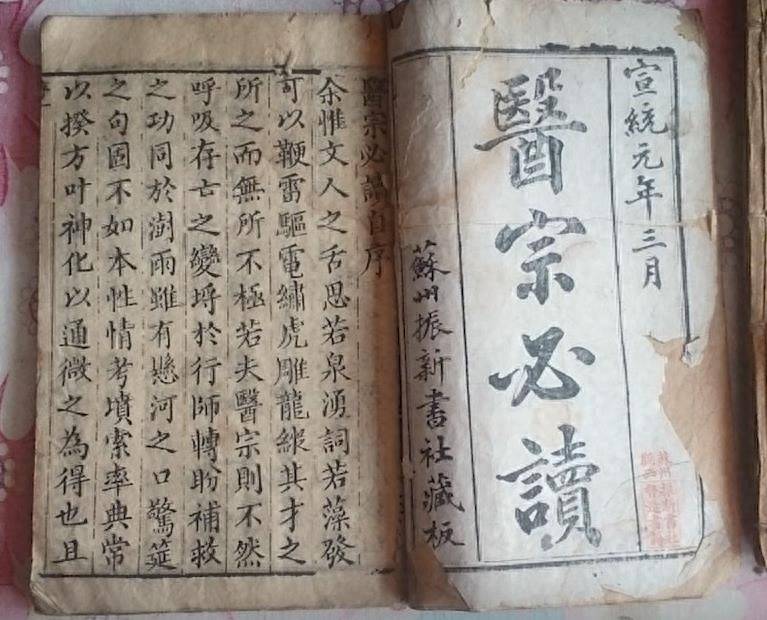 宣統元年三月
醫宗必讀
蘇州振新書社藏板
醫宗必讀自序
余惟文人之舌思若泉湧詞若藻發
可以鞭雷驅電繡虎雕龍縱其才之
所之而無所不極若夫醫宗則不然
呼吸存亡之變埒於行師轉盼補救
之功同於澍雨雖有懸河之口驚筵
之句固不如本性情考墳索率典常
以揆方叶神化以通微之為得也且